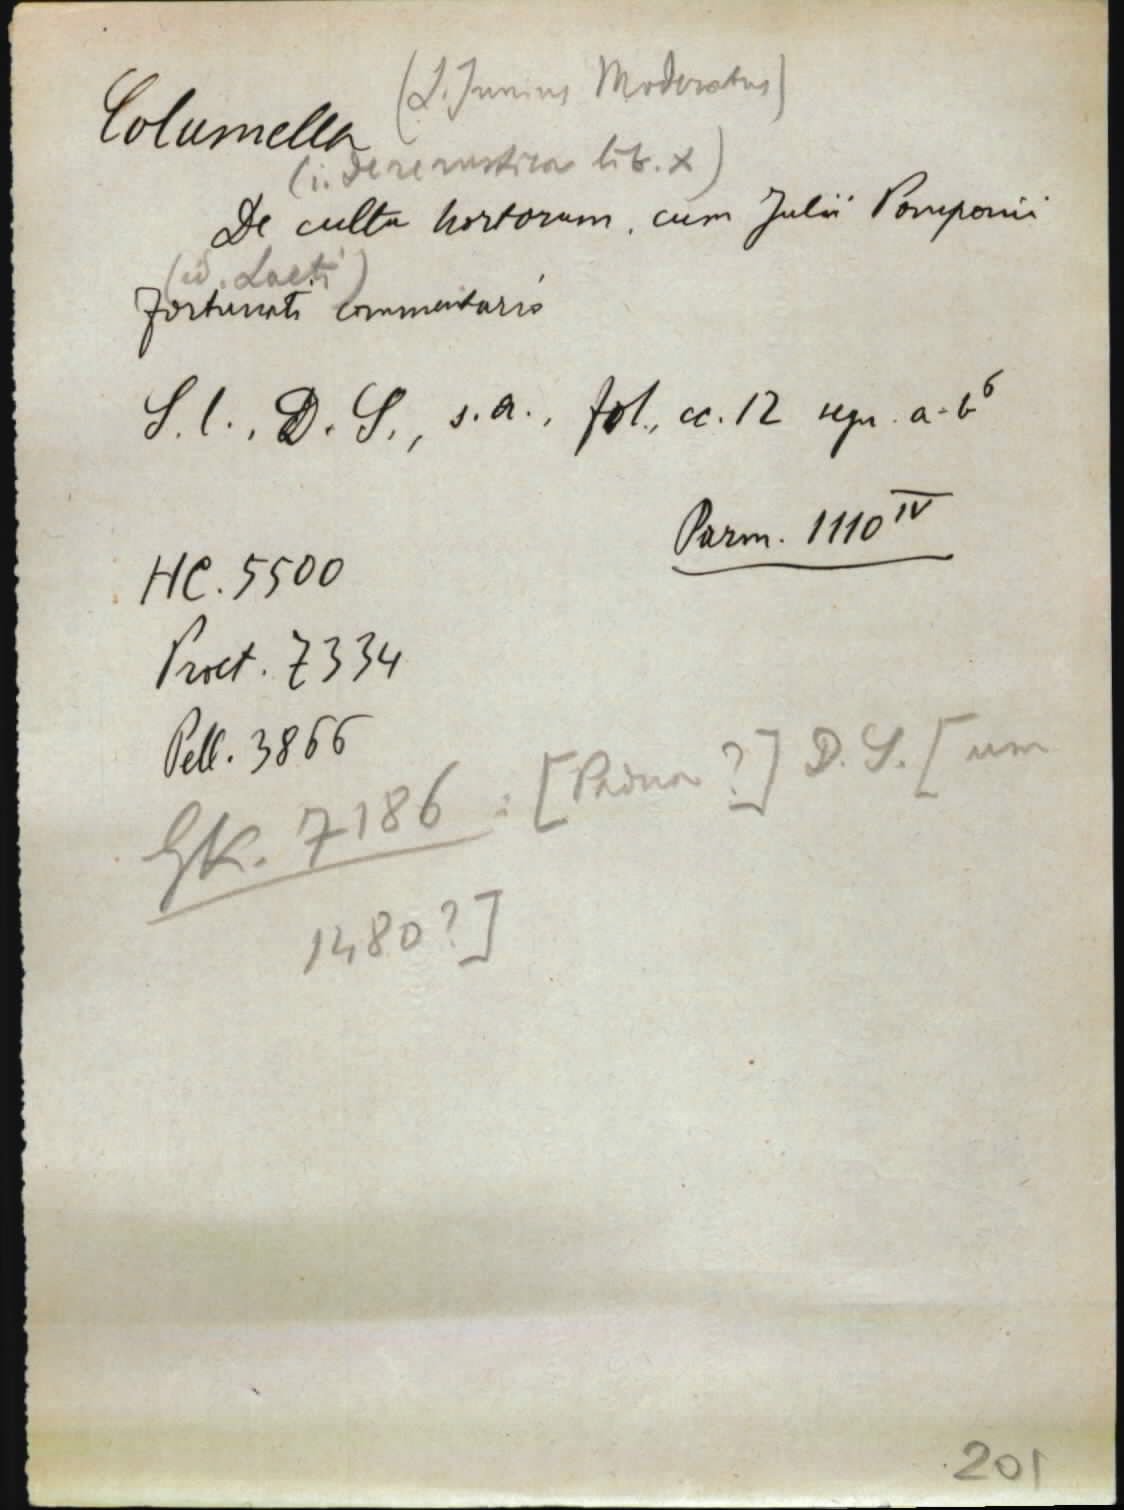 (L. Junius Moderatus)
Columella
(i. De re rustica lib. X)
De cultu hortorum, cum Julii Pomponii
(id. Laeti)
Fortunati commentario
S. l., D. S., s. a., fol., cc. 12 segn. a-b⁶
Parm. 1110 IV
HC. 5500
Proct. 7334
Pell. 3866
GK. 7186 : [Padua ?] D. S. [um
1480?]
201